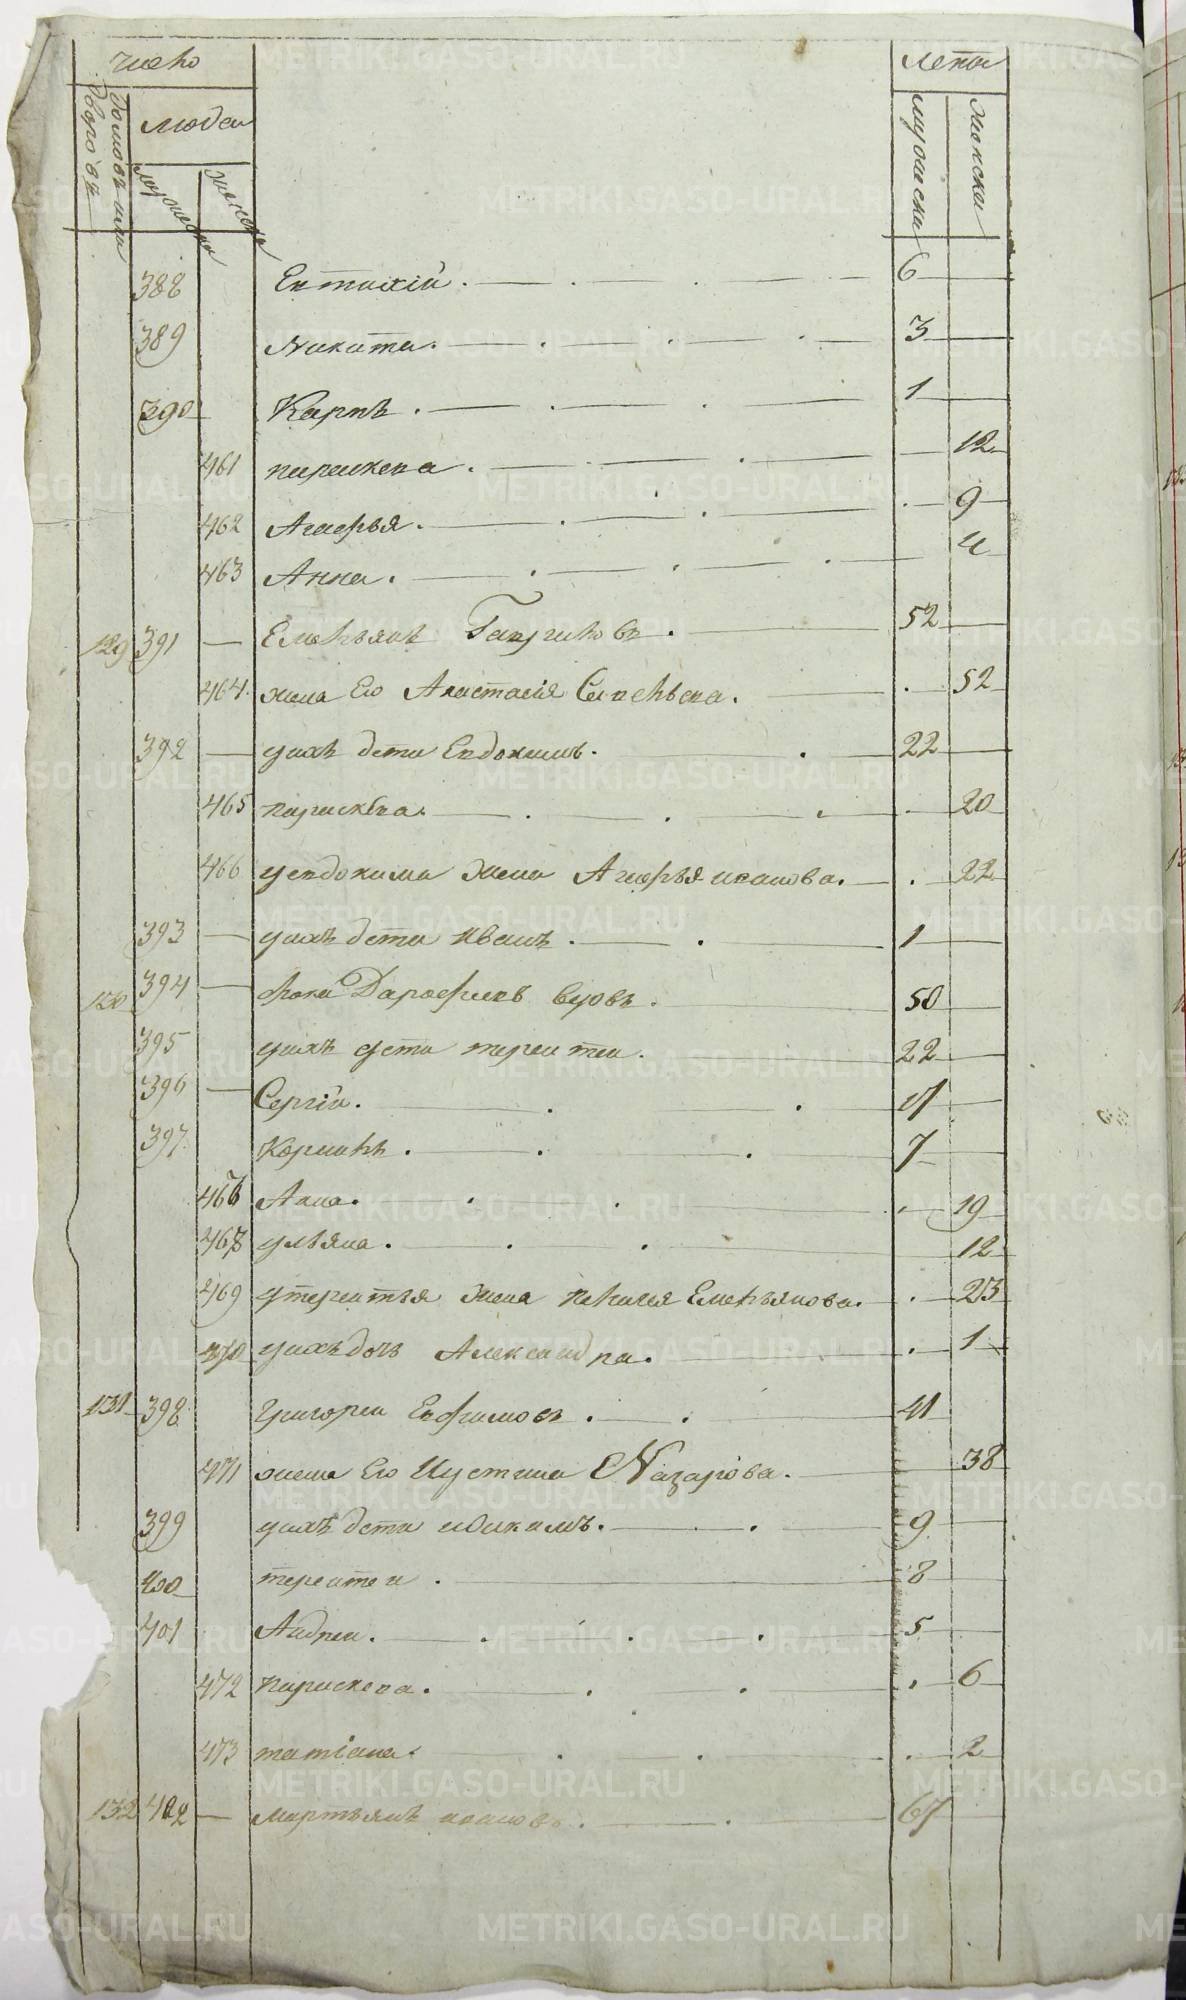 число лета
домовъ или дворовъ
людей
мужеска женска мужеска женска
388 Евтихій. 6
389 Никита. 3
390 Карпъ. 1
461 параскева. 12
462 Агафья. 9
463 Анна. 4
129 391 Емельянъ Гавриловъ. 52
464 жена Его Анастасія Савельева. 52
392 уихъ дети Евдокимъ. 22
465 параскева. 20
466 уевдокима жена Агафья иванова. 22
393 уихъ дети иванъ. 1
130 394 Дарофиевъ вдовъ. 50
395 уихъ дети терентеи. 22
396 Сергій.
397 Корнилъ. 7
467 Анна. 19
468 ульяна. 12
469 утерентья жена Емельянова. 23
470 уихъ дочь Александра. 1
131 398 Григореи Евфимовъ. 41
471 жена Его Иустина Назарова. 38
399 уихъ дети 9
400 терентеи. 8
401 Андреи. 5
472 параскева. 6
473 татіана. 2
132 402 мартьянъ ивановъ. 67
METRIKI.GASO-URAL.RU